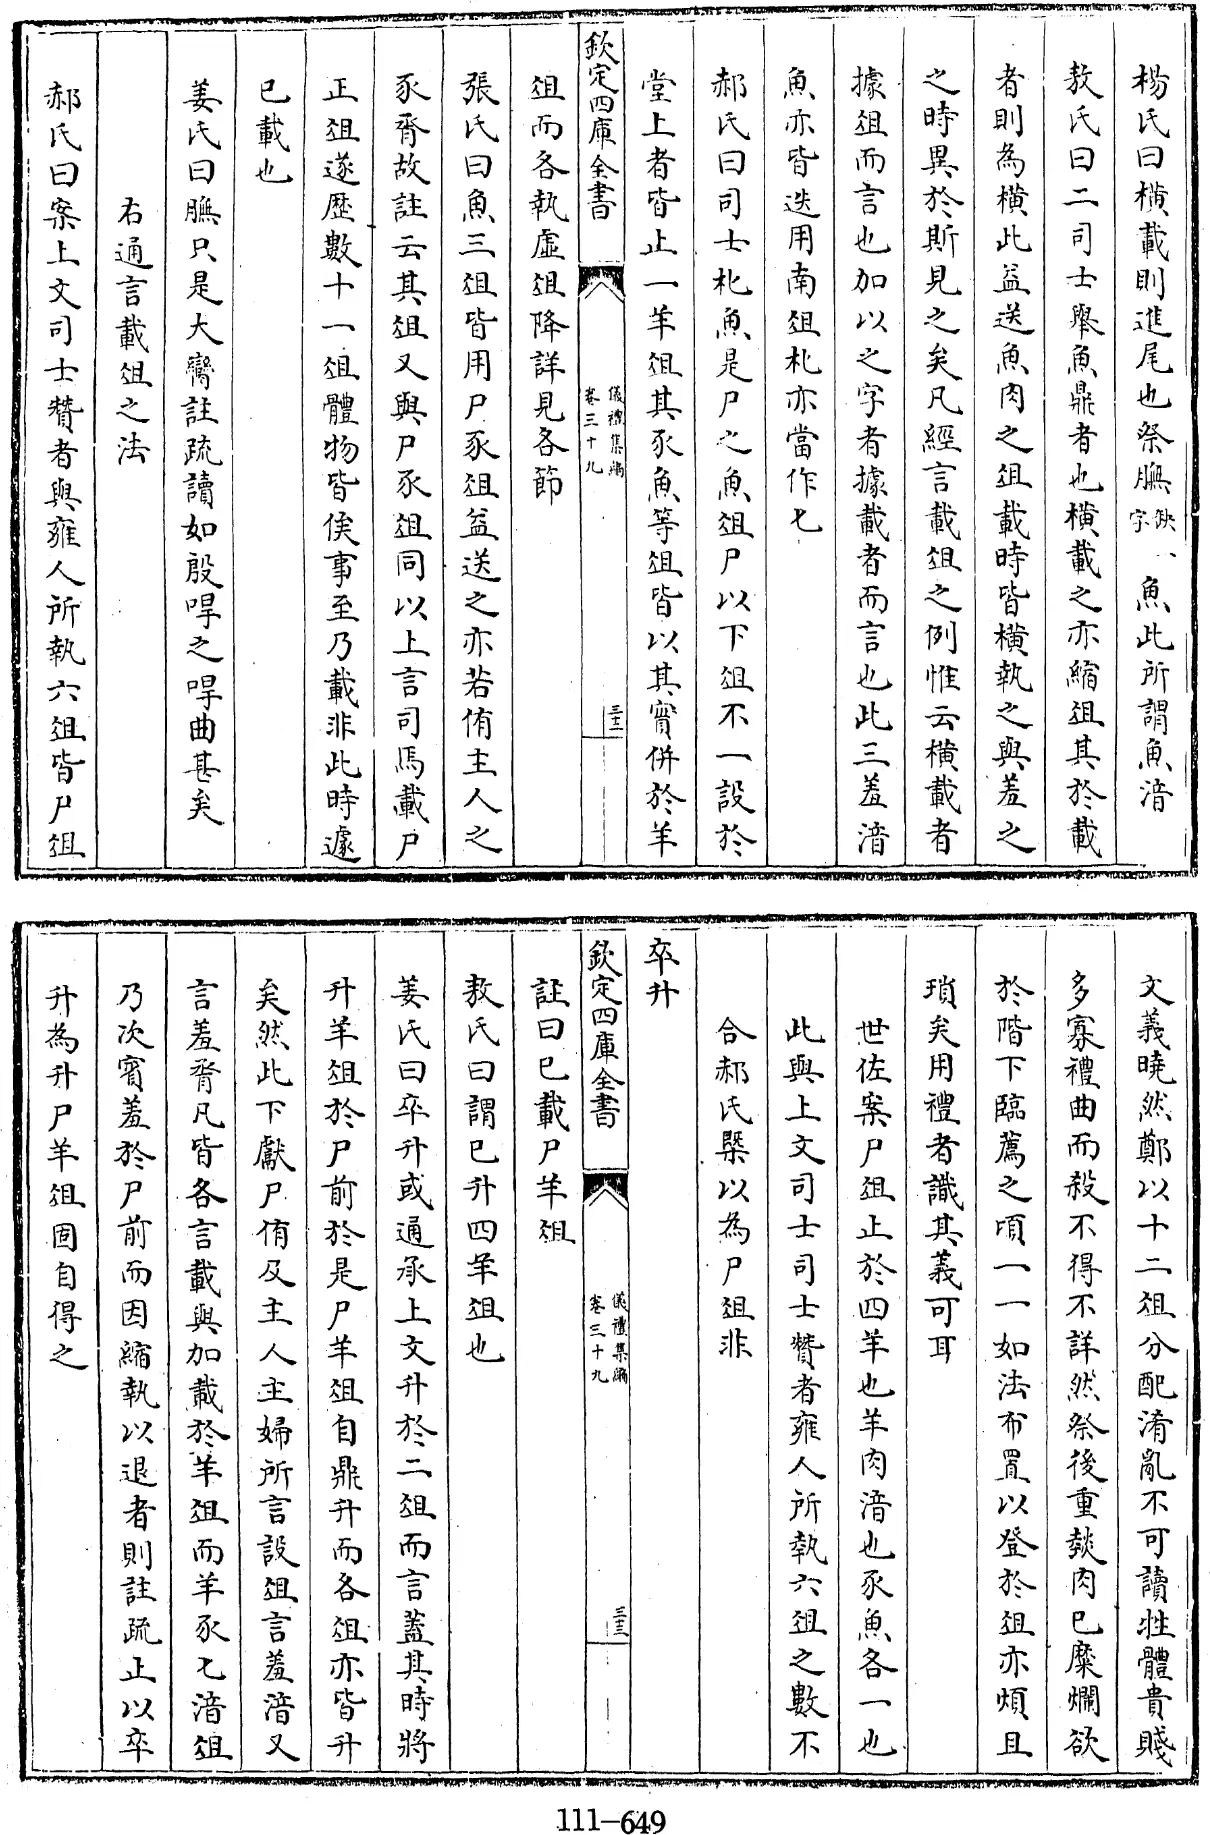 楊氏曰橫載則進尾也祭膴缺一字魚此所謂魚湆
敖氏曰二司士舉魚鼎者也橫載之亦縮俎其於載
者則為橫此益送魚肉之俎載時皆橫執之與羞之
之時異於斯見之矣凡經言載俎之例惟云橫載者
據俎而言也加以之字者據載者而言也此三羞湆
魚亦皆迭用南俎朼亦當作匕
郝氏曰司士朼魚是尸之魚俎尸以下俎不一設於
堂上者皆止一羊俎其豕魚等俎皆以其實併於羊
欽定四庫全書
儀禮集編
卷三十九
三十二
俎而各執虛俎降詳見各節
張氏曰魚三俎皆用尸豕俎益送之亦若侑主人之
豕脀故註云其俎又與尸豕俎同以上言司馬載尸
正俎遂歷數十一俎體物皆俟事至乃載非此時遽
已載也
姜氏曰膴只是大臠註疏讀如殷冔之冔曲甚矣
右通言載俎之法
郝氏曰案上文司士贊者與雍人所執六俎皆尸俎
文義曉然鄭以十二俎分配淆亂不可讀牲體貴賤
多寡禮曲而殺不得不詳然祭後重燅肉已糜爛欲
於階下臨薦之頃一一如法布置以登於俎亦煩且
瑣矣用禮者識其義可耳
世佐案尸俎止於四羊也羊肉湆也豕魚各一也
此與上文司士司士贊者雍人所執六俎之數不
合郝氏槩以為尸俎非
卒升
欽定四庫全書
儀禮集編
卷三十九
三十三
註曰已載尸羊俎
敖氏曰謂已升四羊俎也
姜氏曰卒升或通承上文升於二俎而言蓋其時將
升羊俎於尸前於是尸羊俎自鼎升而各俎亦皆升
矣然此下獻尸侑及主人主婦所言設俎言羞湆又
言羞脀凡皆各言載與加載於羊俎而羊豕匕湆俎
乃次賓羞於尸前而因縮執以退者則註疏止以卒
升為升尸羊俎固自得之
111-649